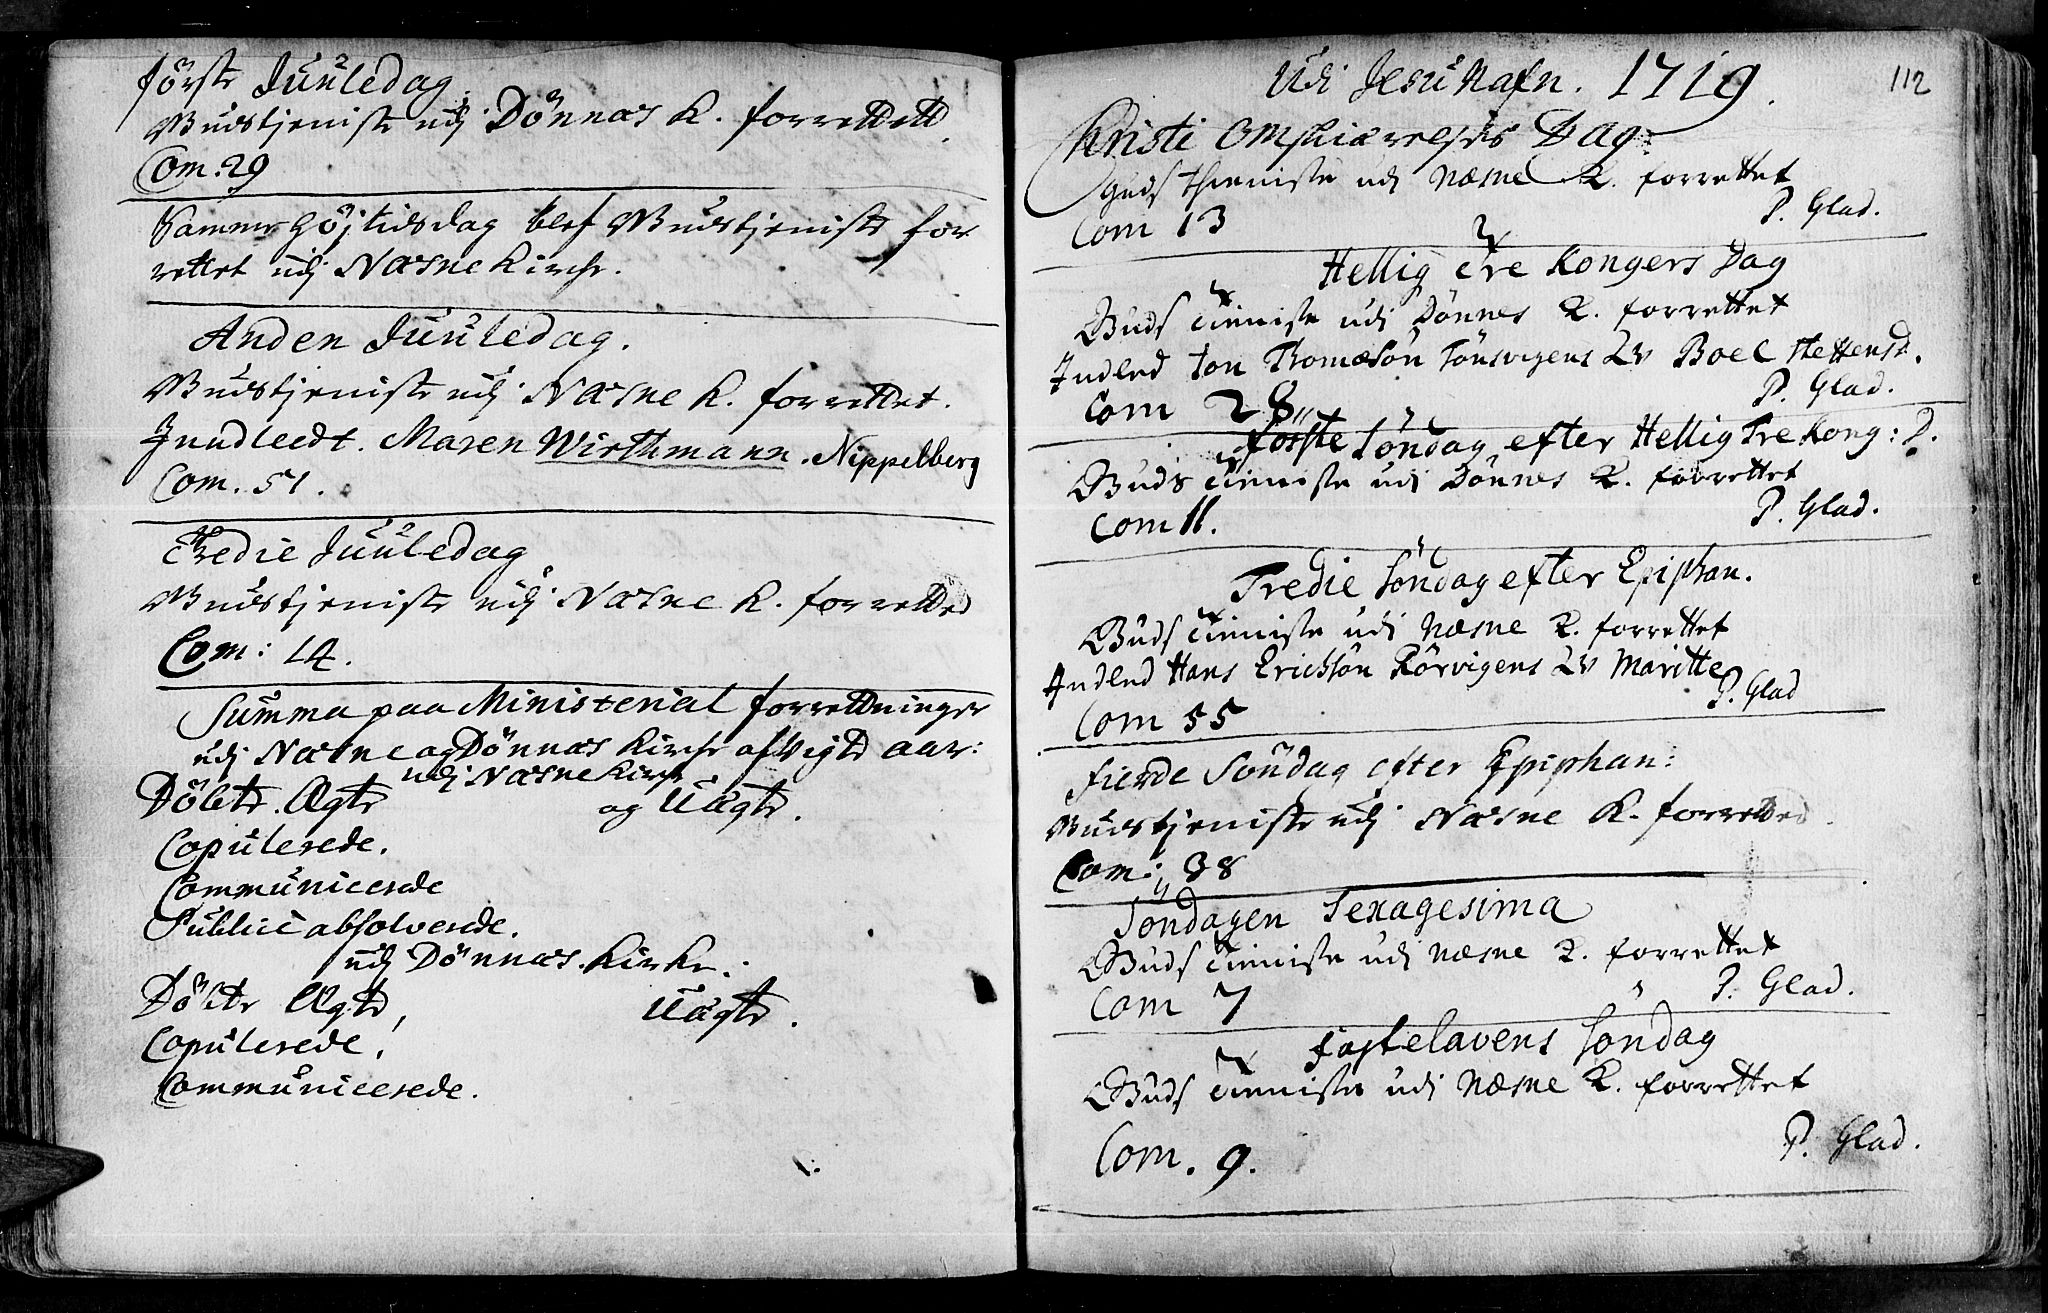 første Juuledag.
Gudstjeniste udj Dönnæs K. forrettett.
Com: 29
Samme Höjtidsdag blef Gudstjeniste for
rettet udj Næsne Kirche.
Anden Juuledag.
Gudstjeniste udj Næsne K. forrettet.
Inndleedt. Maren Wirthmann. Nippelberg
Com. 51.
Tredie Juuledag
Gudstjeniste udj Næsne K. forretted
Com: 14.
Summa paa Ministerial forrettninger
udj Næsne og Dönnæs Kirche afvigte aar:
udj Næsne Kirche
Döbte. Ægte og Uægte.
Copulerede.
Communicerede
Publice absolverede.
udj Dönnæs Kirke:
Döbte Ægte, Uægte.
Copulerede,
Communicerede.
112
Udi Jesu Nafn. 1719.
Christi Omskiærelses Dag.
Guds thieniste udi Næsne K. forrettet
P. Glad.
Com 13
Hellig Tre Kongers Dag
Guds Tieniste udi Dønnes K. forrettet
Indled Jon Thomæsøn Tønsvigens Qv Boel
P. Glad.
Com 28
Første Søndag efter Hellig Tre Kong: D.
Guds Tieniste udi Dønnes K. forrettet
P. Glad.
Com 11.
Tredie Søndag efter Epiphan.
Guds Tieniste udi Næsne K. forrettet
Indled Hans Erichsøn Rørvigens Qv Maritte
P. Glad
Com 55
Fierde Söndag efter Epiphan:
Gudstjeniste udj Næsne K. forretted.
Com: 38
Søndagen Sexagesima
Guds Tieniste udi Næsne K. forrettet
P. Glad.
Com 7
Fastelavens Søndag
Guds Tieniste udi Næsne K. forrettet
P. Glad.
Com. 9.